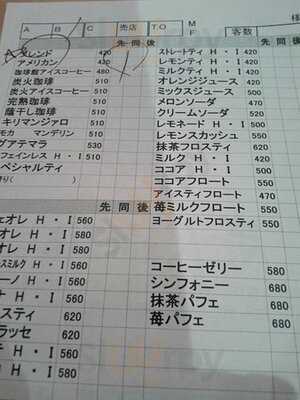 A B C 売店 T.O M F 客数
先 同 後
ブレンド 420
アメリカン 420
珈琲館アイスコーヒー 480
炭火珈琲 510
炭火アイスコーヒー 510
完熟珈琲 510
蔭干し珈琲 510
キリマンジァロ 510
モカ マンデリン 510
グアテマラ 530
フェインレス H・I 510
スペシャルティ
( )
先 同 後
ストレートティ H・I 420
レモンティ H・I 420
ミルクティ H・I 420
オレンジジュース 420
ミックスジュース 500
メロンソーダ 470
クリームソーダ 520
レモネード H・I 500
レモンスカッシュ 550
抹茶フロスティ 620
ミルク H・I 420
ココア H・I 500
ココアフロート 550
アイスティフロート 470
苺ミルクフロート 550
ヨーグルトフロスティ 550
先 同 後
ェオレ H・I 560
オレ H・I 580
オレ H・I 580
スミルク H・I 560
ーノ H・I 560
ナ H・I 560
スティ 620
ラッセ 620
H・I 560
H・I 580
コーヒーゼリー 580
シンフォニー 680
抹茶パフェ 680
苺パフェ 680